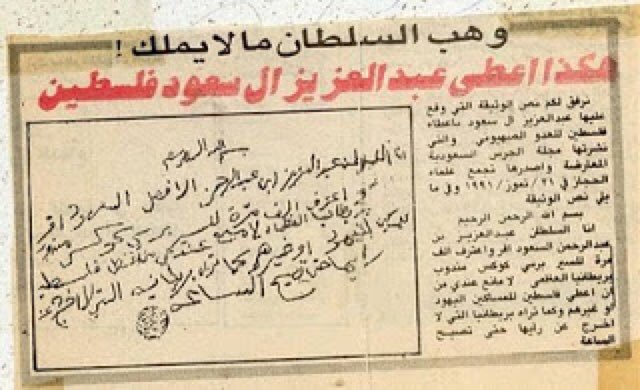 وهب السلطان ما لا يملك !
هكذا اعطى عبدالعزيز ال سعود فلسطين
نرفق لكم نص الوثيقة التي وقع
عليها عبدالعزيز ال سعود باعطاء
فلسطين للعدو الصهيوني والتي
نشرتها مجلة الحرس السعودية
المعارضة واصدرها تجمع علماء
الحجاز في ٣١/تموز/١٩٩١ وفي ما
يلي نص الوثيقة
بسم الله الرحمن الرحيم
انا السلطان عبدالعزيز بن
عبدالرحمن السعود اقر واعترف الف
مرة للسير برسي كوكس مندوب
بريطانيا العظمى لا مانع عندي من
ان اعطي فلسطين للمساكين اليهود
او غيرهم وكما تراه بريطانيا التي لا
اخرج عن رايها حتى تصيح
الساعة
بسم الله الرحمن الرحيم
انا السلطان عبدالعزيز ابن عبدالرحمن الفيصل السعود اقر
و اعترف الف مرة للسير برسي كوكس مندوب
بريطانيا العظمى لا مانع عندي
او غيرهم كما تراه بريطانيا التي لا اخرج عن
رايها حتى تصيح الساعة